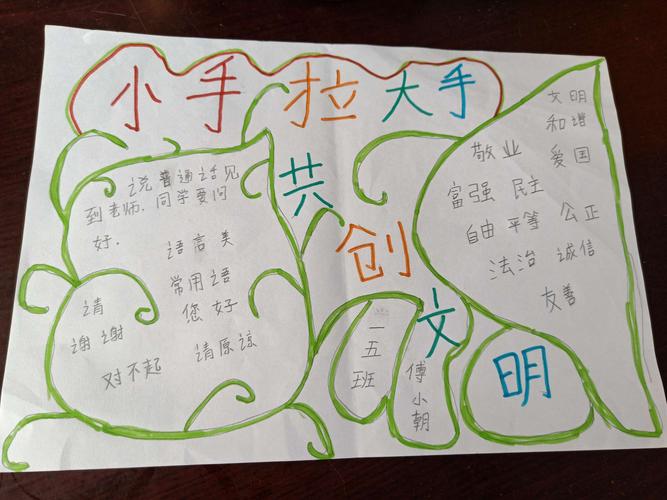 小手拉大手
共创文明
说普通话见
到老师.同学要问
好.
语言美
常用语
请
您好
谢谢
请原谅
对不起
一五班
傅小朝
文明
和谐
敬业
爱国
富强 民主
公正
自由 平等
诚信
法治
友善